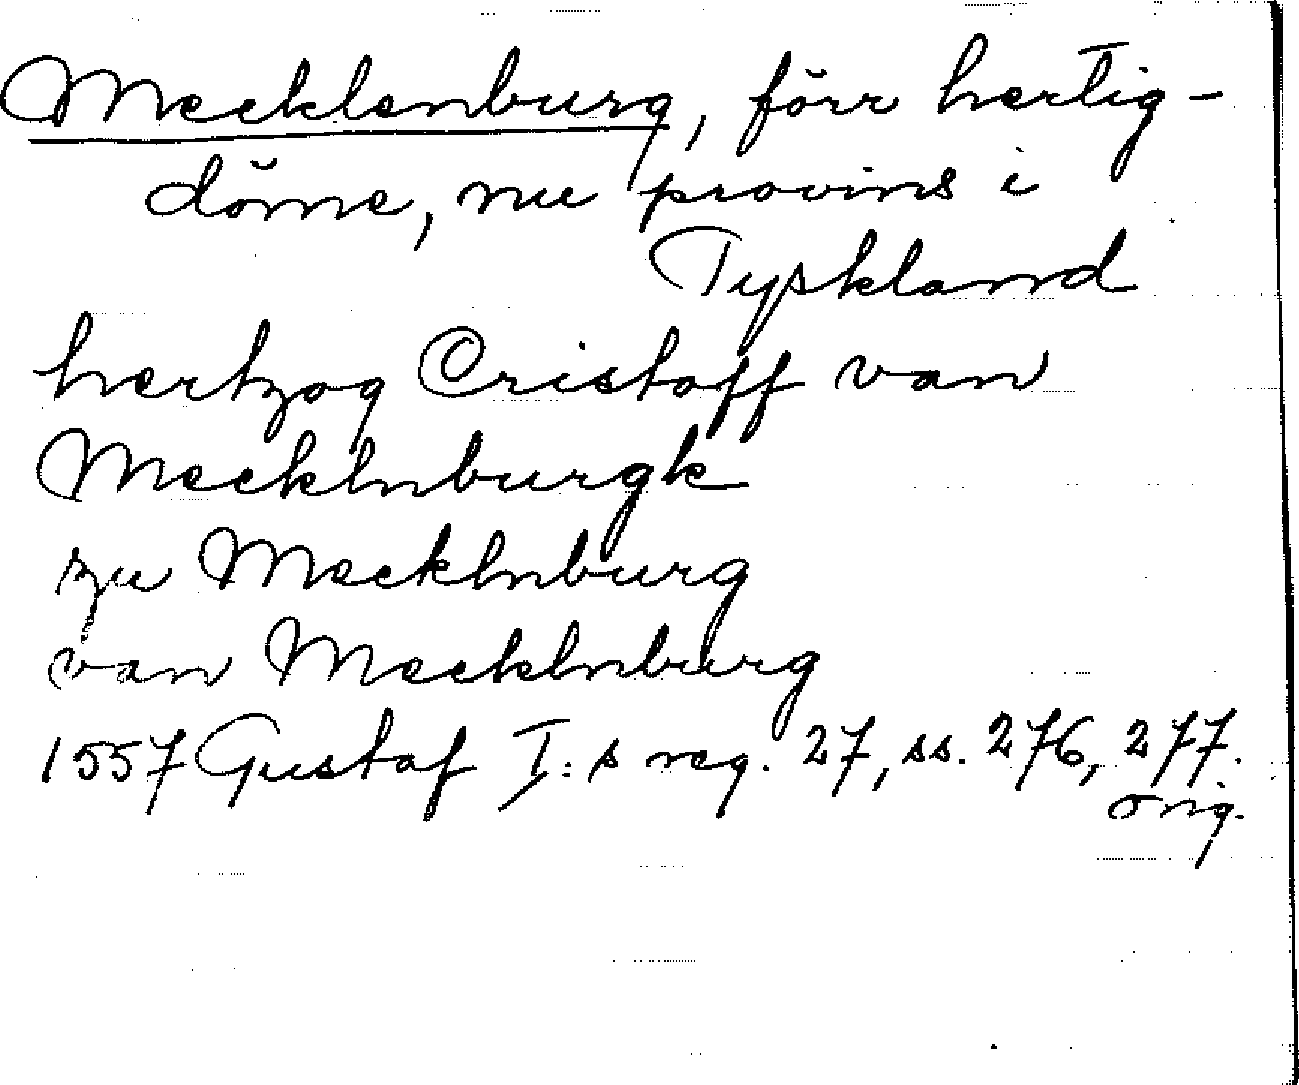 Mecklenburg, förr hertig-
döme, nu provins i
Tyskland
hertzog Cristoff van
Mecklnburgk
zu Mecklnburg
van Mecklnburg
1557 Gustaf I:s reg. 27, ss. 276, 277.
orig.